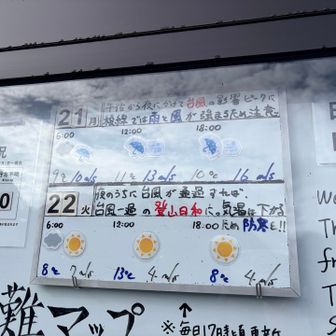 21 月 午後から夜にかけて台風の影響ピークに
稜線では雨と風が強まるため注意
6:00 12:00 18:00
9℃ 10m/s 11℃ 13m/s 10℃ 16m/s
22 火 夜のうちに台風が通過すれば、
台風一過の登山日和に。気温は下がる
ため防寒を!!
6:00 12:00 18:00
8℃ 7m/s 13℃ 4m/s 8℃ 4m/s
難マップ
※毎日17時頃更新
況
0
We
Th
fr
Th